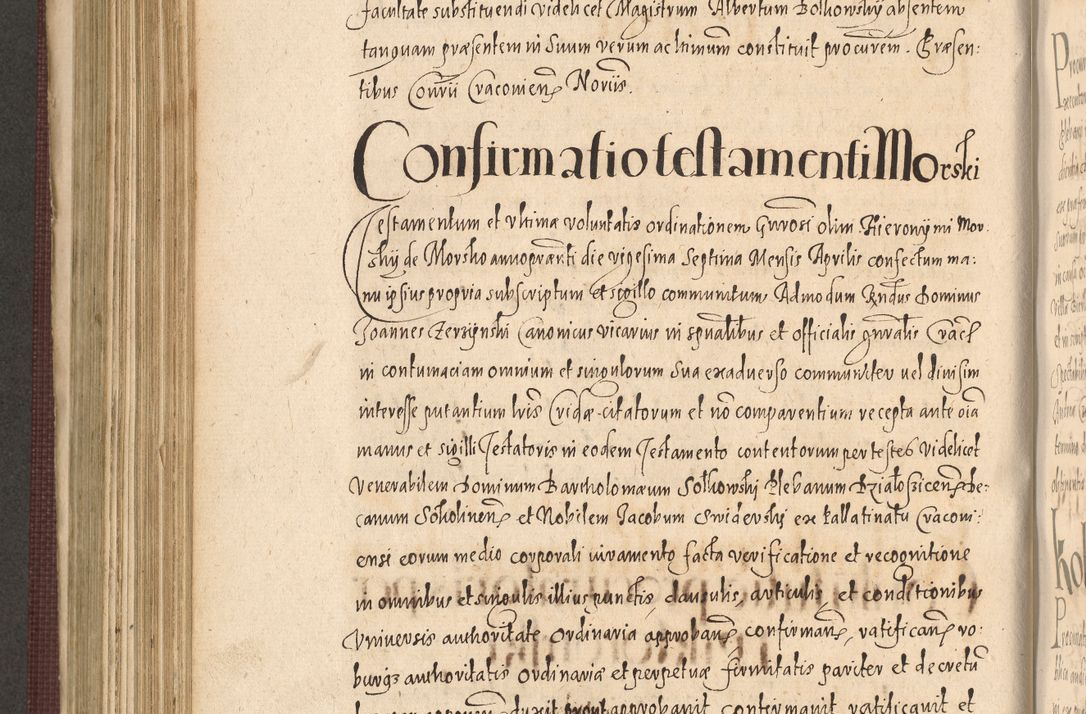 facultate substituendi videlicet Magistrum Albertum Bolkowsky absentem
tanquam præsentem in Suum verum ac ltimum constituit procurem. Præsen:
tibus Cracovieñ Noriis.
Confirmatio testamenti Morski
Testamentum et vltimæ voluntatis ordinationem Gñrosi olim Hieronymi Mor
sky de Morsko anno præñti die vigesima septima Mensis Aprilis confectum ma:
nu ipsius propria subscriptum et sigillo communitum Admodum Rndus Dominus
Joannes Zerzynski Canonicus vicarius in spũalibus et officialis gñralis Crac̃
in contumaciam omnium et singulorum sua exadverso communiter vel divisim
interesse putantium lris Cridæ citatorum et nõ comparentium recepta ante oĩa
manus et sigilli Testatoris in eodem Testamento contentorum per testes videlicet
Venerabilem Dominum Bartholomæum Solkowski Plebanum Dzialoszicen̄ De:
canum Sokolineñ et Nobilem Jacobum Swiderski ex Pallatinatu Cracovi:
ensi eorum medio corporali iuramento facta verificatione et recognitione
in omnibus et singulis illius punctis, clausulis, articulis, et conditionibus
Vniversis authoritate ordinaria approbañ, confirmañ, ratificañ ro:
burq3 authoritatis ordinariæ et perpetuæ firmitatis pariter et decretũ
duxit approbavit confirmavit ratificavit et